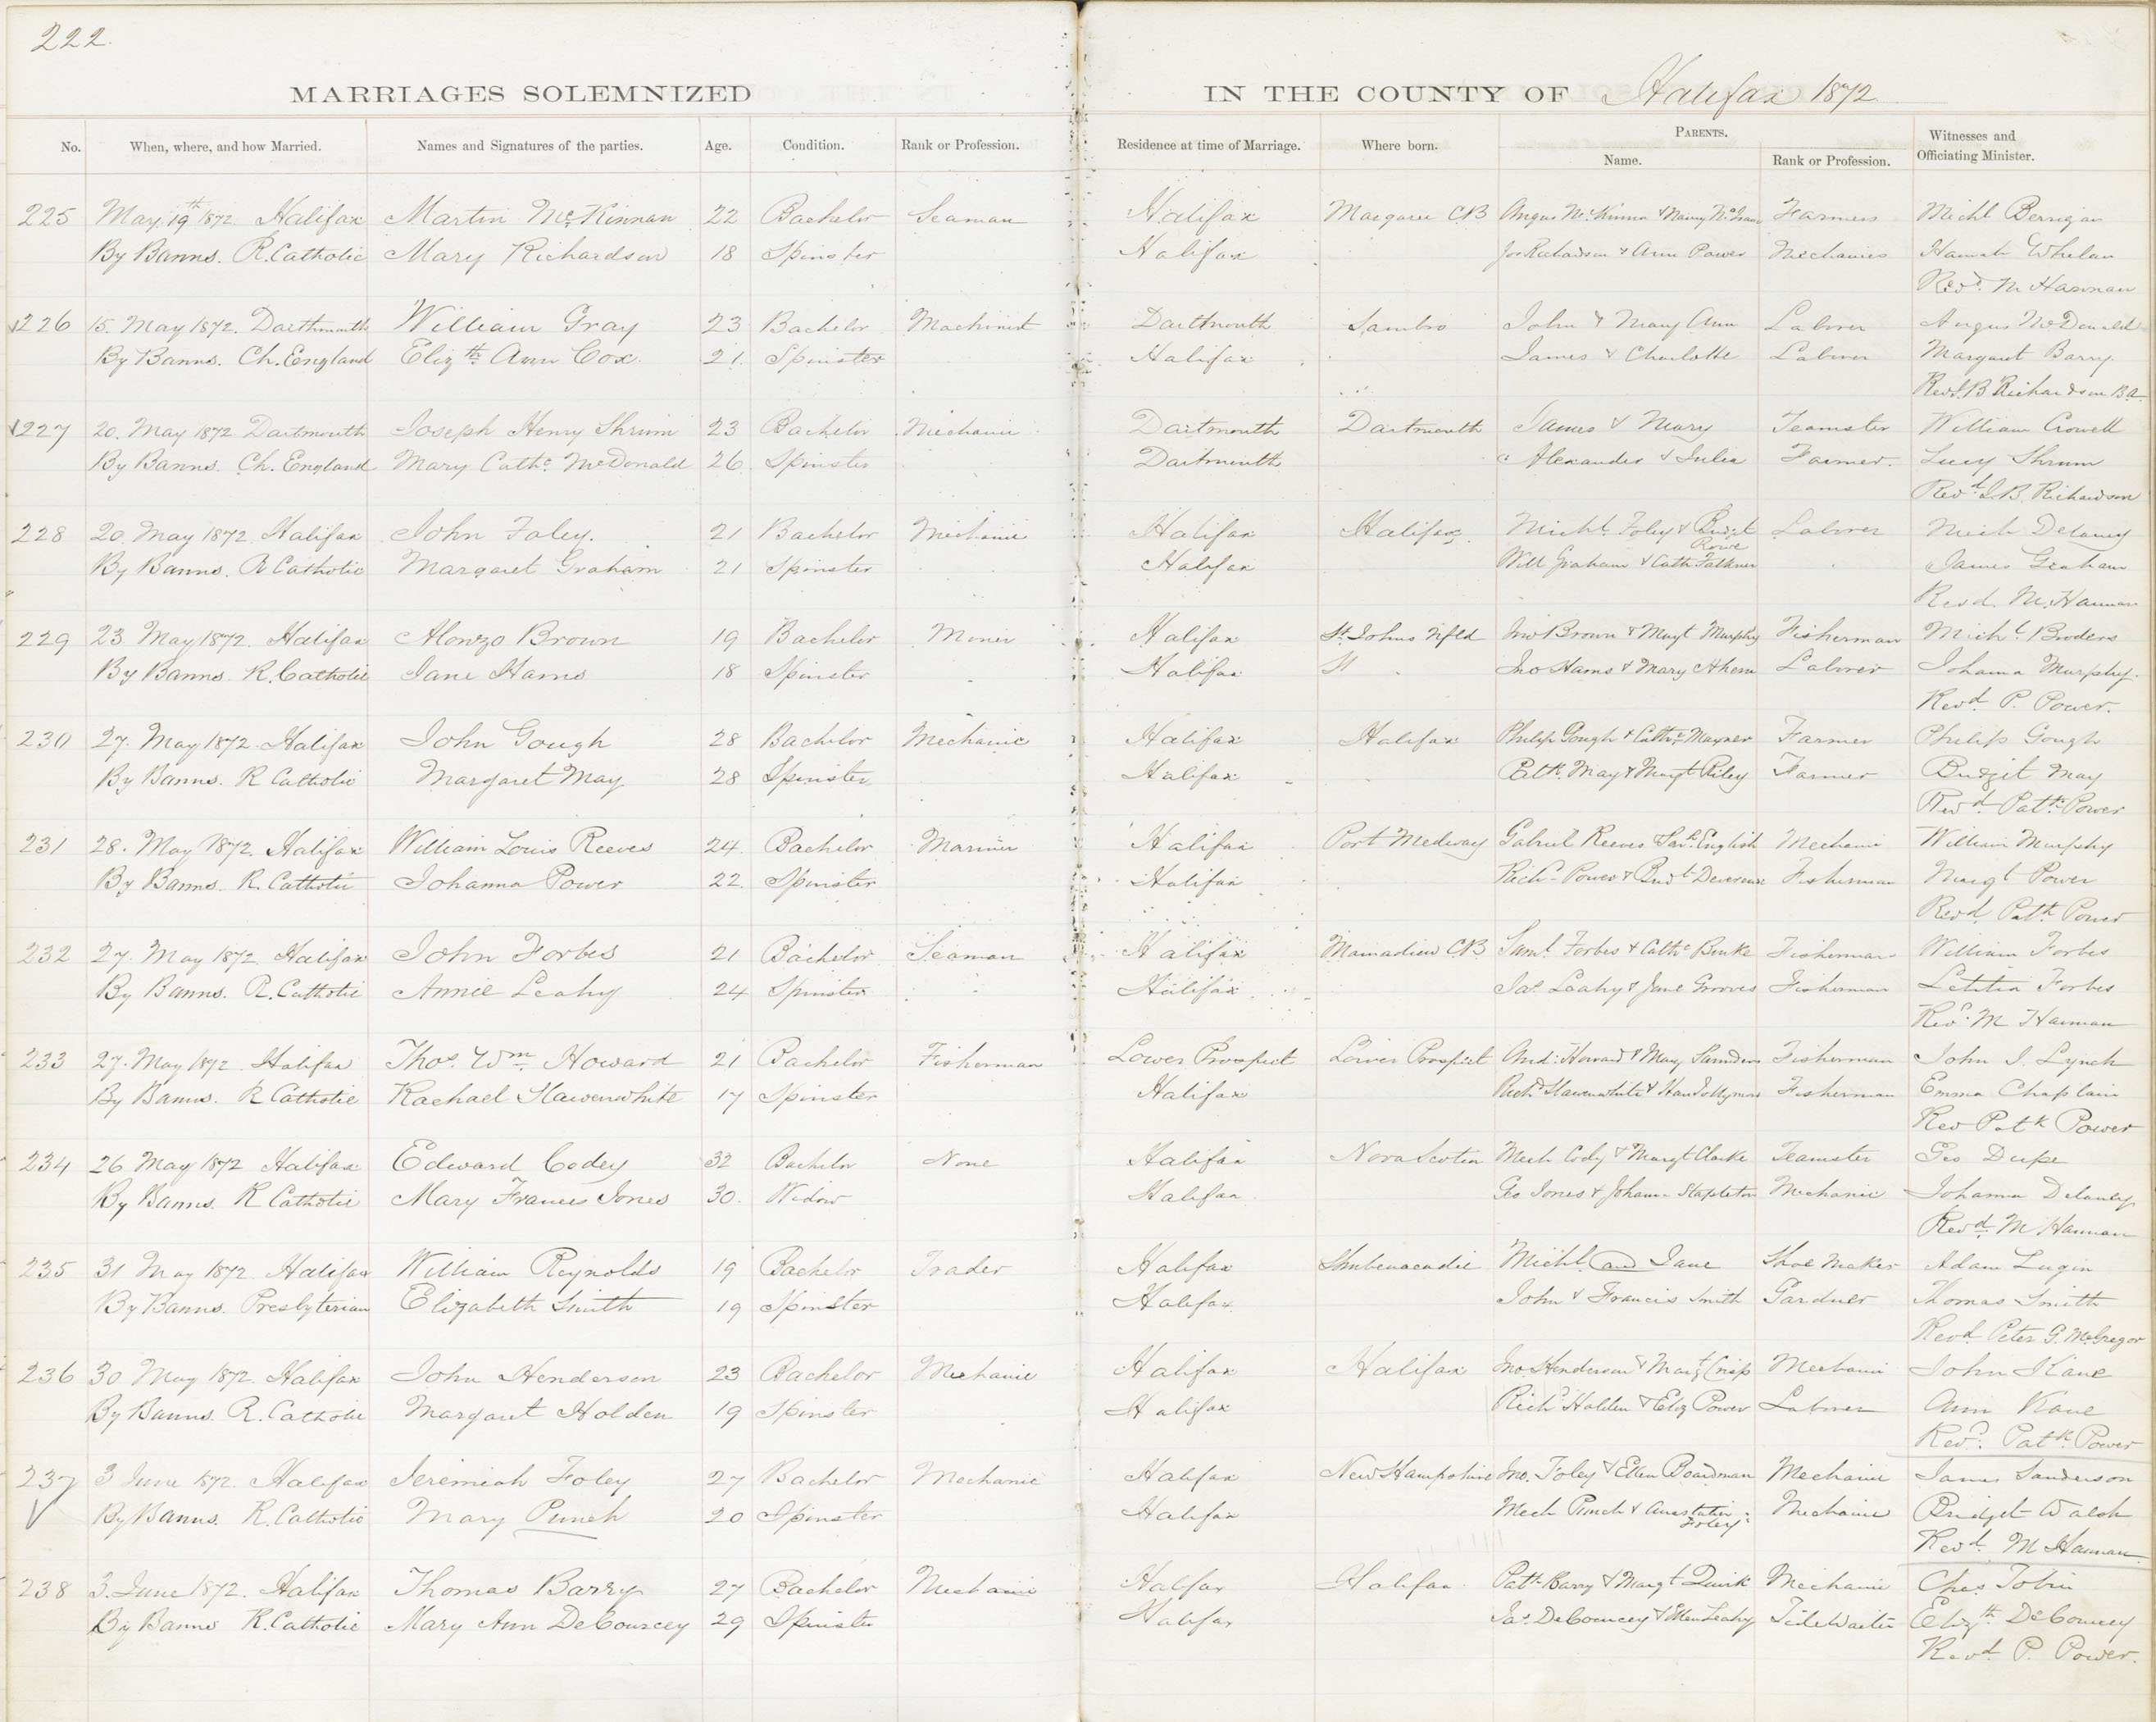 222.
MARRIAGES SOLEMNIZED IN THE COUNTY OF Halifax 1872
No. When, where, and how Married. Names and Signatures of the parties. Age. Condition. Rank or Profession. Residence at time of Marriage. Where born. PARENTS. Name. Rank or Profession. Witnesses and Officiating Minister.
225 May, 19th 1872. Halifax Martin McKinnan 22 Bachelor Seaman Halifax Margaree CB Angus McKinnon & Nancy Farmers Michl Berrigan
By Banns. R. Catholic Mary Richardson 18 Spinster Halifax Jos Richardson & Ann Power Mechanics Hannah Whelan
Revd. M Hannan
226 15. May 1872. Dartmouth William Gray 23 Bachelor Machinist Dartmouth Sambro John & Mary Ann Labrer Angus McDonald
By Banns. Ch. England Elizth Ann Cox. 21. Spinster Halifax James & Charlotte Labrer Margaret Barry
Revd J.B Richardson B.A.
227 20. May 1872 Dartmouth Joseph Henry Shrum 23 Bachelor Mechanic Dartmouth Dartmouth James & Mary Teamster William Crowell
By Banns. Ch. England Mary Cathe McDonald 26 Spinster Dartmouth Alexander & Julia Farmer. Lucy Shrum
Revd J.B. Richardson
228 20. May 1872 Halifax John Foley. 21 Bachelor Mechanic Halifax Halifax. Michl. Foley & Bridgt Rowe Labrer Mich Delaney
By Banns. R Catholic Margaret Graham 21 Spinster Halifax Will Graham & Cath Falkner James Graham
Revd. M. Hannan
229 23 May 1872. Halifax Alonzo Brown 19 Bachelor Miner Halifax St. Johns Nfld Jno Brown & Margt Murphy Fisherman Michl Broders
By Banns R. Catholic Jane Hams 18 Spinster Halifax Jno Hams & Mary Ahern Labrer Johanna Murphy.
Revd. P. Power.
230 27. May 1872. Halifax John Gough 28 Bachelor Mechanic Halifax Halifax Philip Gough & Cathe Mayner Farmer Philip Gough
By Banns. R Catholic Margaret May 28 Spinster Halifax Patk. May & Margt Riley Farmer Bridgit May
Revd Patk Power
231 28. May 1872. Halifax William Louis Reeves 24. Bachelor Mariner Halifax Port Medway Gabriel Reeves & Sarh English Mechanic William Murphy
By Banns. R. Catholic Johanna Power 22. Spinster Halifax Richd Power & Bridt Devereux Fisherman Margt Power
Revd. Patk Power
232 27. May 1872 Halifax John Forbes 21 Bachelor Seaman Halifax Mainadieu CB Saml. Forbes & Cathe Burke Fisherman William Forbes
By Banns. R. Catholic Annie Leahy 24 Spinster Halifax Jas Leahy & Jane Grooves Fisherman Letitia Forbes
Revd. M Hannan
233 27. May 1872. Halifax Thos. Wm. Howard 21 Bachelor Fisherman Lower Prospect Lower Prospect And: Howard & Mary Saunders Fisherman John J. Lynch
By Banns. R Catholic Rachael Hawenwhite 17 Spinster Halifax Richd Hawenwhite & Han Jollymore Fisherman Emma Chaplain
Rev Patk Power
234 26 May 1872 Halifax Edward Codey 32 Bachelor None Halifax Nova Scotia Mich Cody & Margt Clarke Teamster Geo Dupe
By Banns. R Catholic Mary Frances Jones 30. Widow Halifax Geo Jones & Johan Stapleton Mechanic Johanna Delaney
Revd. M Hannan
235 31 May 1872 Halifax William Reynolds 19 Bachelor Trader Halifax Shubenacadie Michl. and Jane Shoe Maker Adam Lugin
By Banns. Presbyterian Elizabeth Smith 19 Spinster Halifax John & Francis Smith Gardner Thomas Smith
Revd. Peter G. McGregor
236 30 May 1872. Halifax John Henderson 23 Bachelor Mechanic Halifax Halifax Jno. Henderson & Margt Crisp Mechanic John Kane
By Banns. R. Catholic Margaret Holden 19 Spinster Halifax Richd Holden & Eliz Power Labrer Ann Kane
Revd. Patk. Power
237 3 June 1872. Halifax Jeremiah Foley 27 Bachelor Mechanic Halifax New Hampshire Jno. Foley & Ellen Boardman Mechanic James Sanderson
By Banns. R. Catholic Mary Punch 20 Spinster Halifax Mich Punch & Anastatia Foley Mechanic Bridget Walsh
Revd. M Hannan
238 3. June 1872. Halifax Thomas Barry 27 Bachelor Mechanic Halifax Halifax Patk Barry & Margt Quirk Mechanic Chas Tobin
By Banns R. Catholic Mary Ann DeCourcey 29 Spinster Halifax Jas DeCourcey & Ellen Leahy Tide Waiter Elizth DeCourcey
Revd P. Power.